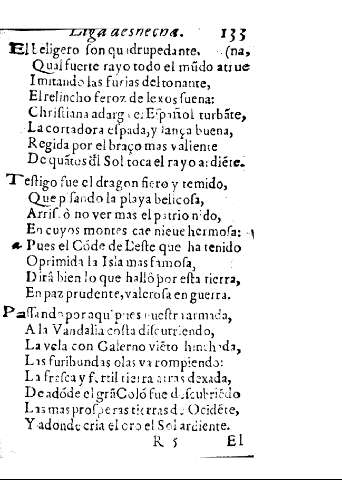 Liga deshecha. 133
El teligero son quadrupedante, (na,
Qual fuerte rayo todo el mũdo atrue
Imitando las furias del tonante,
El relincho feroz de lexos suena:
Christiana adarga Español turbãte,
La cortadora espada, y lança buena,
Regida por el braço mas valiente
De quãtos đl Sol toca el rayo ardiẽte.
Testigo fue el dragon fiero y temido,
Que pisando la playa belicosa,
Arrisò no ver mas el patrio nido,
En cuyos montes cae nieue hermosa:
Pues el Cõde de Leste que ha tenido
Oprimida la Isla mas famosa,
Dirà bien lo que hallò por esta tierra,
En paz prudente, valerosa en guerra.
Passando por aqui pues nuestra armada,
A la Vandalia costa discurriendo,
La vela con Galerno viẽto hinchada,
Las furibundas olas va rompiendo:
La fresca y fertil tierra atras dexada,
De adõde el grã Colõ fue descubriẽdo
Las mas prosperas tierras de Ocidẽte,
Y adonde cria el oro el Sol ardiente.
R 5 El